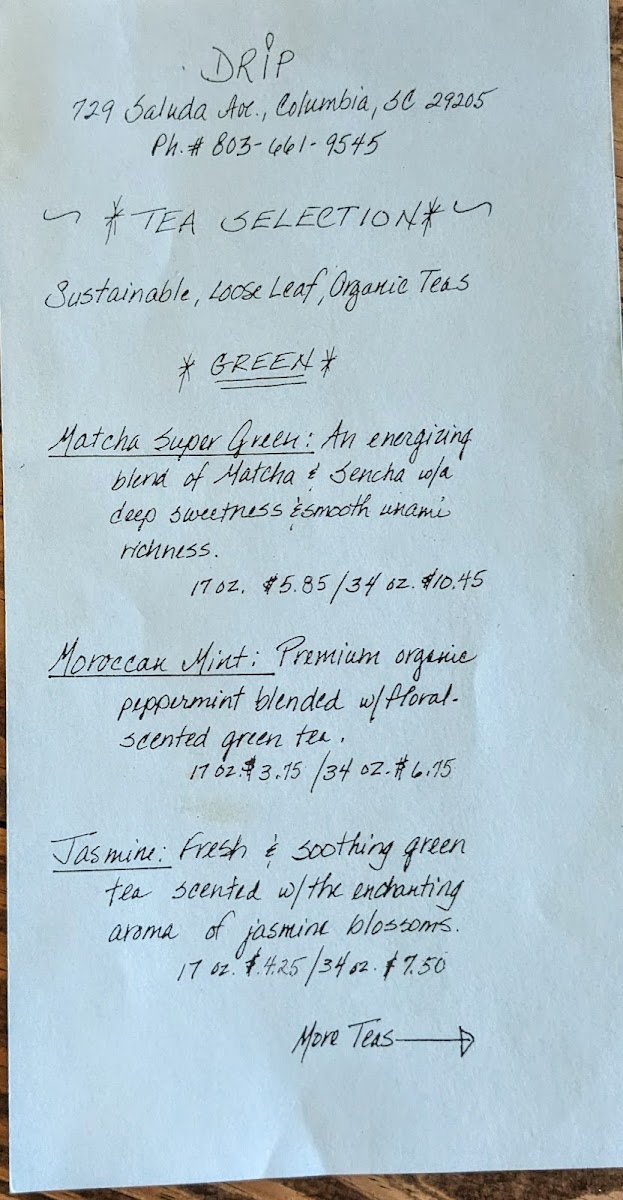 DRIP
729 Saluda Ave., Columbia, SC 29205
Ph.# 803-661-9545
~ *TEA SELECTION* ~
Sustainable, Loose Leaf, Organic Teas
* GREEN *
Matcha Super Green: An energizing
blend of Matcha & Sencha w/a
deep sweetness & smooth umami
richness.
17 oz. $5.85/34 oz. $10.45
Moroccan Mint: Premium organic
peppermint blended w/floral-
scented green tea.
17 oz. $3.75/34 oz. $6.75
Jasmine: Fresh & soothing green
tea scented w/the enchanting
aroma of jasmine blossoms.
17 oz. $4.25/34 oz. $7.50
More Teas→